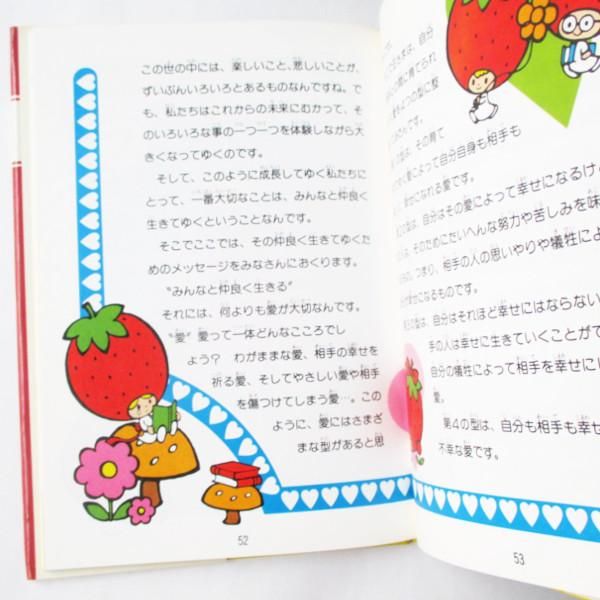 この世の中には、楽しいこと、悲しいことが、
ずいぶんいろいろとあるものなんですね。で
も、私たちはこれからの未来にむかって、そ
のいろいろな事の一つ一つを体験しながら大
きくなってゆくのです。
そして、このように成長してゆく私たちに
とって、一番大切なことは、みんなと仲良く
生きてゆくということなんです。
そこでここでは、その仲良く生きてゆくた
めのメッセージをみなさんにおくります。
“みんなと仲良く生きる”
それには、何よりも愛が大切なんです。
“愛”愛って一体どんなこころでし
ょう？ わがままな愛、相手の幸せを
祈る愛、そしてやさしい愛や相手
を傷つけてしまう愛…。この
ように、愛にはさまざ
まな型があると思
52
自分
育てられ
つの型に整
型は、その育て
愛によって自分自身も相手も
幸せになれる愛です。
の型は、自分はその愛によって幸せになるけ
、そのためにたいへんな努力や苦しみを味
つまり、相手の人の思いやりや犠牲によ
幸せになるものです。
の型は、自分はそれほど幸せにはならない
手の人は幸せに生きていくことがで
自分の犠牲によって相手を幸せにし
愛。
第４の型は、自分も相手も幸せ
不幸な愛です。
53